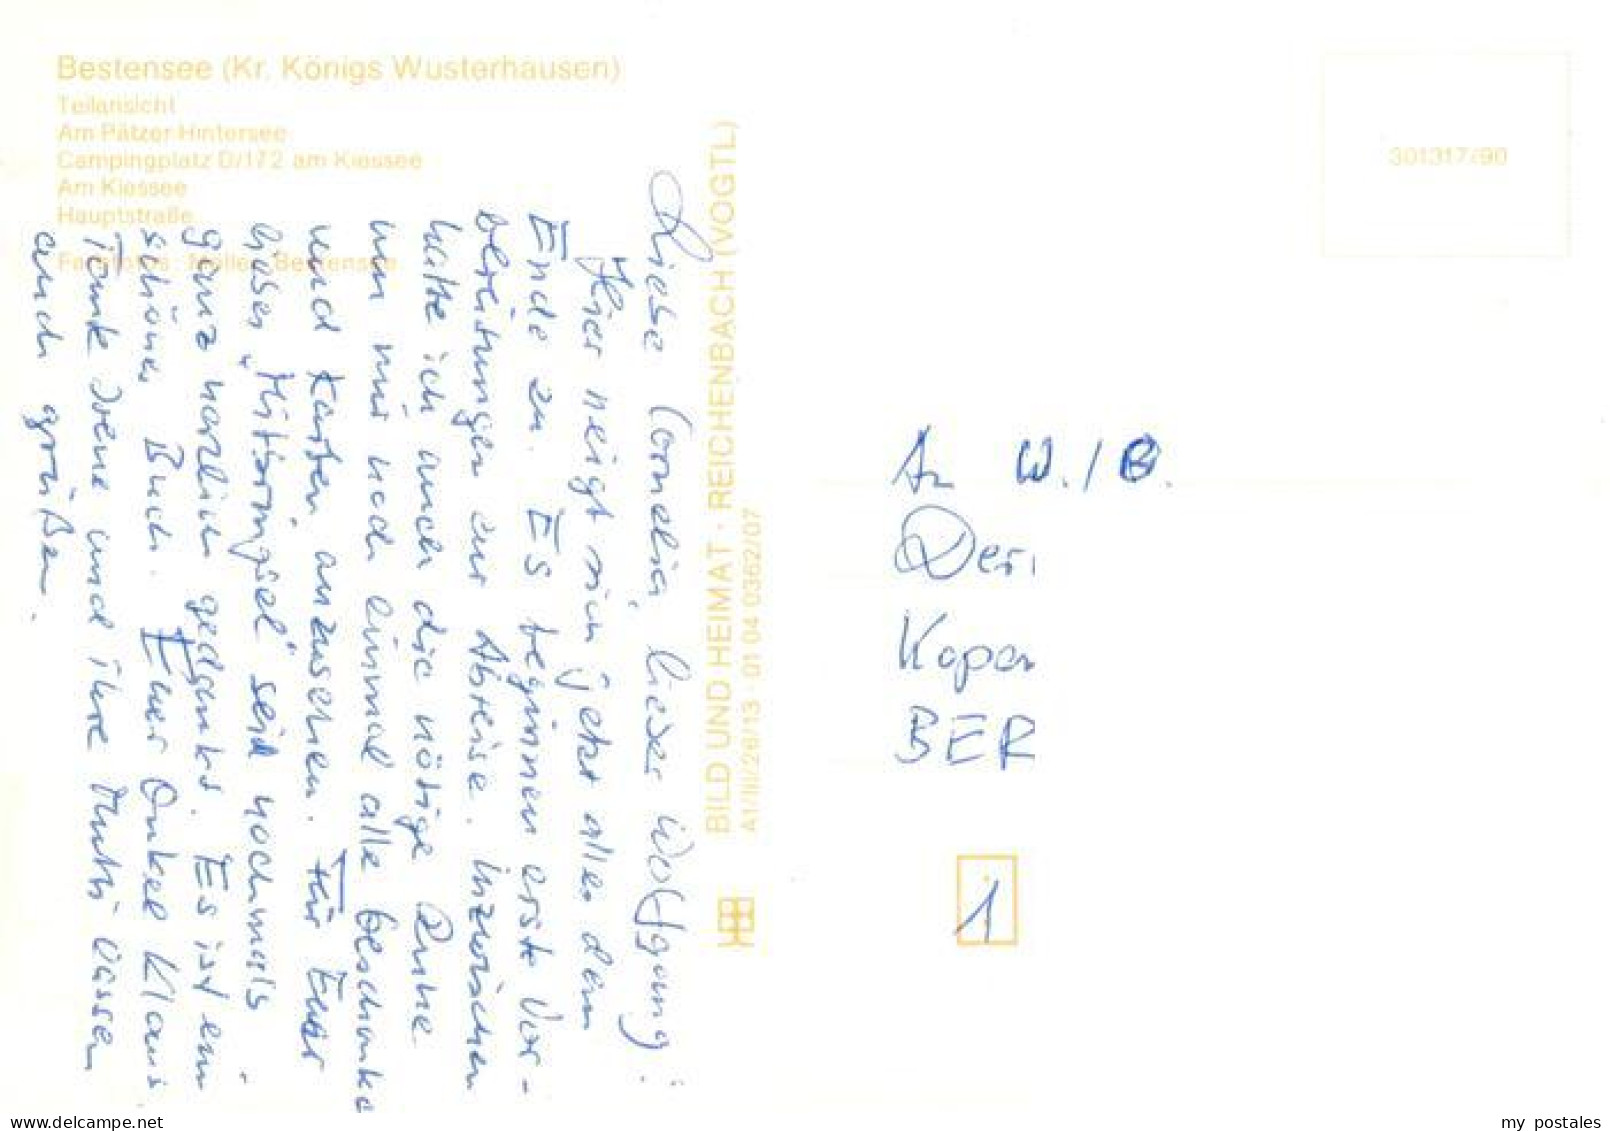 Bestensee (Kr. Königs Wusterhausen)
Teilansicht
Am Pätzer Hintersee
Campingplatz D/172 am Kiessee
Am Kiessee
Hauptstraße
Farbfotos: Müller, Bestensee
BILD UND HEIMAT · REICHENBACH (VOGTL)
A1/III/26/13 · 01 04 0362/07
301317/90
Liebe Cornelia, lieber Wolfgang!
Hier neigt sich jetzt alles dem
Ende zu. Es beginnen erste Vor-
bereitungen zur Abreise. Inzwischen
hatte ich auch die nötige Ruhe
um mir noch einmal alle Geschenke
und Karten anzusehen. Für Euer
liebes „ seid nochmals
ganz herzlich gedankt. Es ist ein
schönes Buch. Euer Onkel Klaus
Tante Irene und ihre Mutti lassen
auch grüßen.
An W./B.
BER
1
my postales
www.delcampe.net